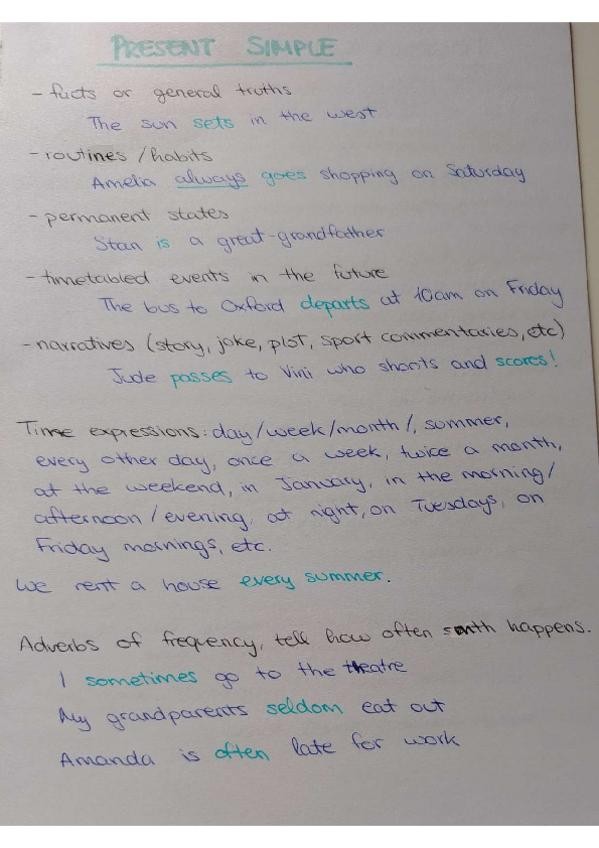 PRESENT SIMPLE
- facts or general truths
The sun sets in the west
- routines / habits
Amelia always goes shopping on Saturday
- permanent states
Stan is a great-grandfather
- timetabled events in the future
The bus to Oxford departs at 10am on Friday
- narratives (story, joke, plot, sport commentaries, etc)
Jude passes to Vini who shoots and scores!
Time expressions: day/week/month/, summer,
every other day, once a week, twice a month,
at the weekend, in January, in the morning/
afternoon/evening, at night, on Tuesdays, on
Friday mornings, etc.
We rent a house every summer.
Adverbs of frequency, tell how often smth happens.
I sometimes go to the theatre
My grandparents seldom eat out
Amanda is often late for work